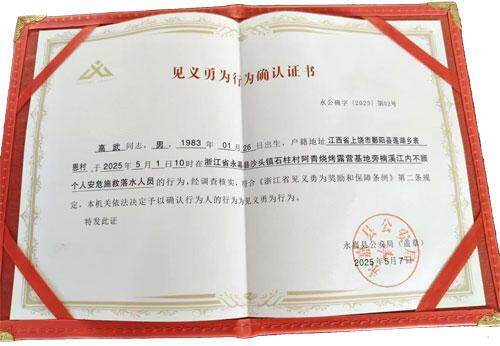 见义勇为行为确认证书
永公确字〔2025〕第02号
高武同志，男，1983年01月26日出生，户籍地址江西省上饶市鄱阳县莲湖乡表
恩村，于2025年5月1日10时在浙江省永嘉县沙头镇石柱村阿青烧烤露营基地旁楠溪江内不顾
个人安危施救落水人员的行为，经调查核实，符合《浙江省见义勇为奖励和保障条例》第二条规
定，本机关依法决定予以确认行为人的行为为见义勇为行为。
特发此证
永嘉县公安局（盖章）
2025年5月7日
永嘉县公安局